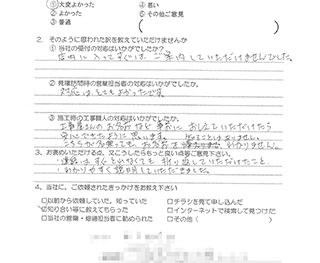 ①大変よかった ④悪い
②よかった ⑤その他ご意見
③普通
2. そのように思われた訳を教えていただけませんか
①当社の受付の対応はいかがでしたか?
店内に入ってすぐは、ご案内していただけませんでした。
②見積訪問時の営業担当者の対応はいかがでしたか。
対応はとてもよかったです。
③施工時の工事職人の対応はいかがでしたか。
工事屋さんのお名前など事前におしえていただけたら
安心できたように思います。
こちらから伺っても、お名前を わかりません。
3. お褒めいただける点、又こうしたらもっと良い点等ご意見下さい。
連絡はすぐとれなくても折り返していただけたこと、
わかりやすく説明していただきました。
4. 当社に、ご依頼されたきっかけをお教え下さい
□以前から依頼していた。知っていた □チラシを見て申し込んだ
☑知り合い等に教えてもらった □インターネットで検索して見つけた
□当社の営業・経理担当者に勧められた □その他(